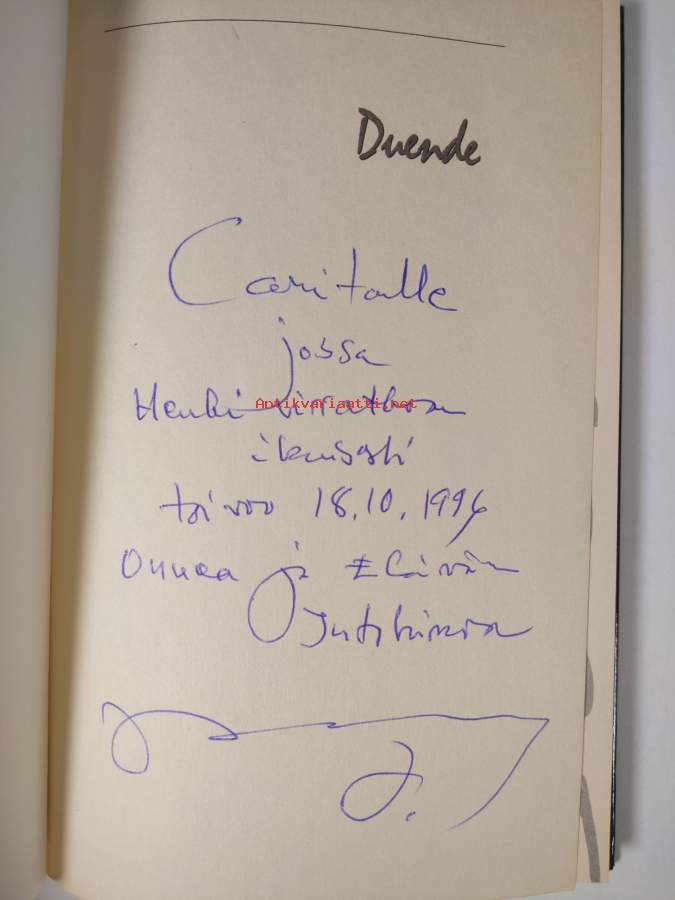 Duende
Caritalle
jossa
Henki
Antikvariaatti.net
ikuisesti
toivoo 18.10.1996
Onnea ja Elävän